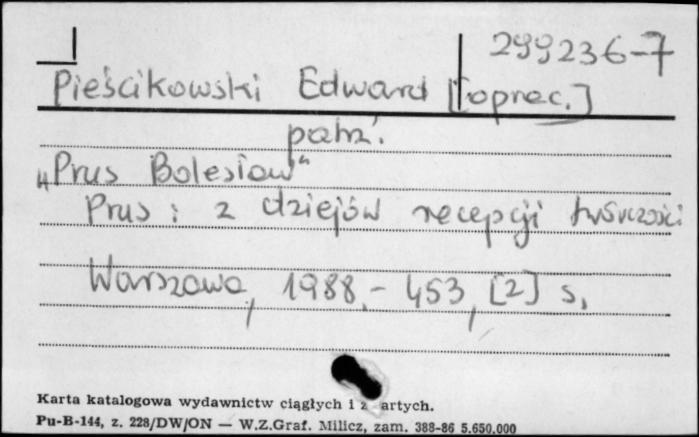 299236-7
Pieścikowski Edward [oprac.]
patrz:
„Prus Bolesław"
Prus: z dziejów recepcji twórczości
Warszawa, 1988.- 453, [2] s.
Karta katalogowa wydawnictw ciągłych i z artych.
Pu-B-144, z. 228/DW/ON — W.Z.Graf. Milicz, zam. 388-86 5.650.000